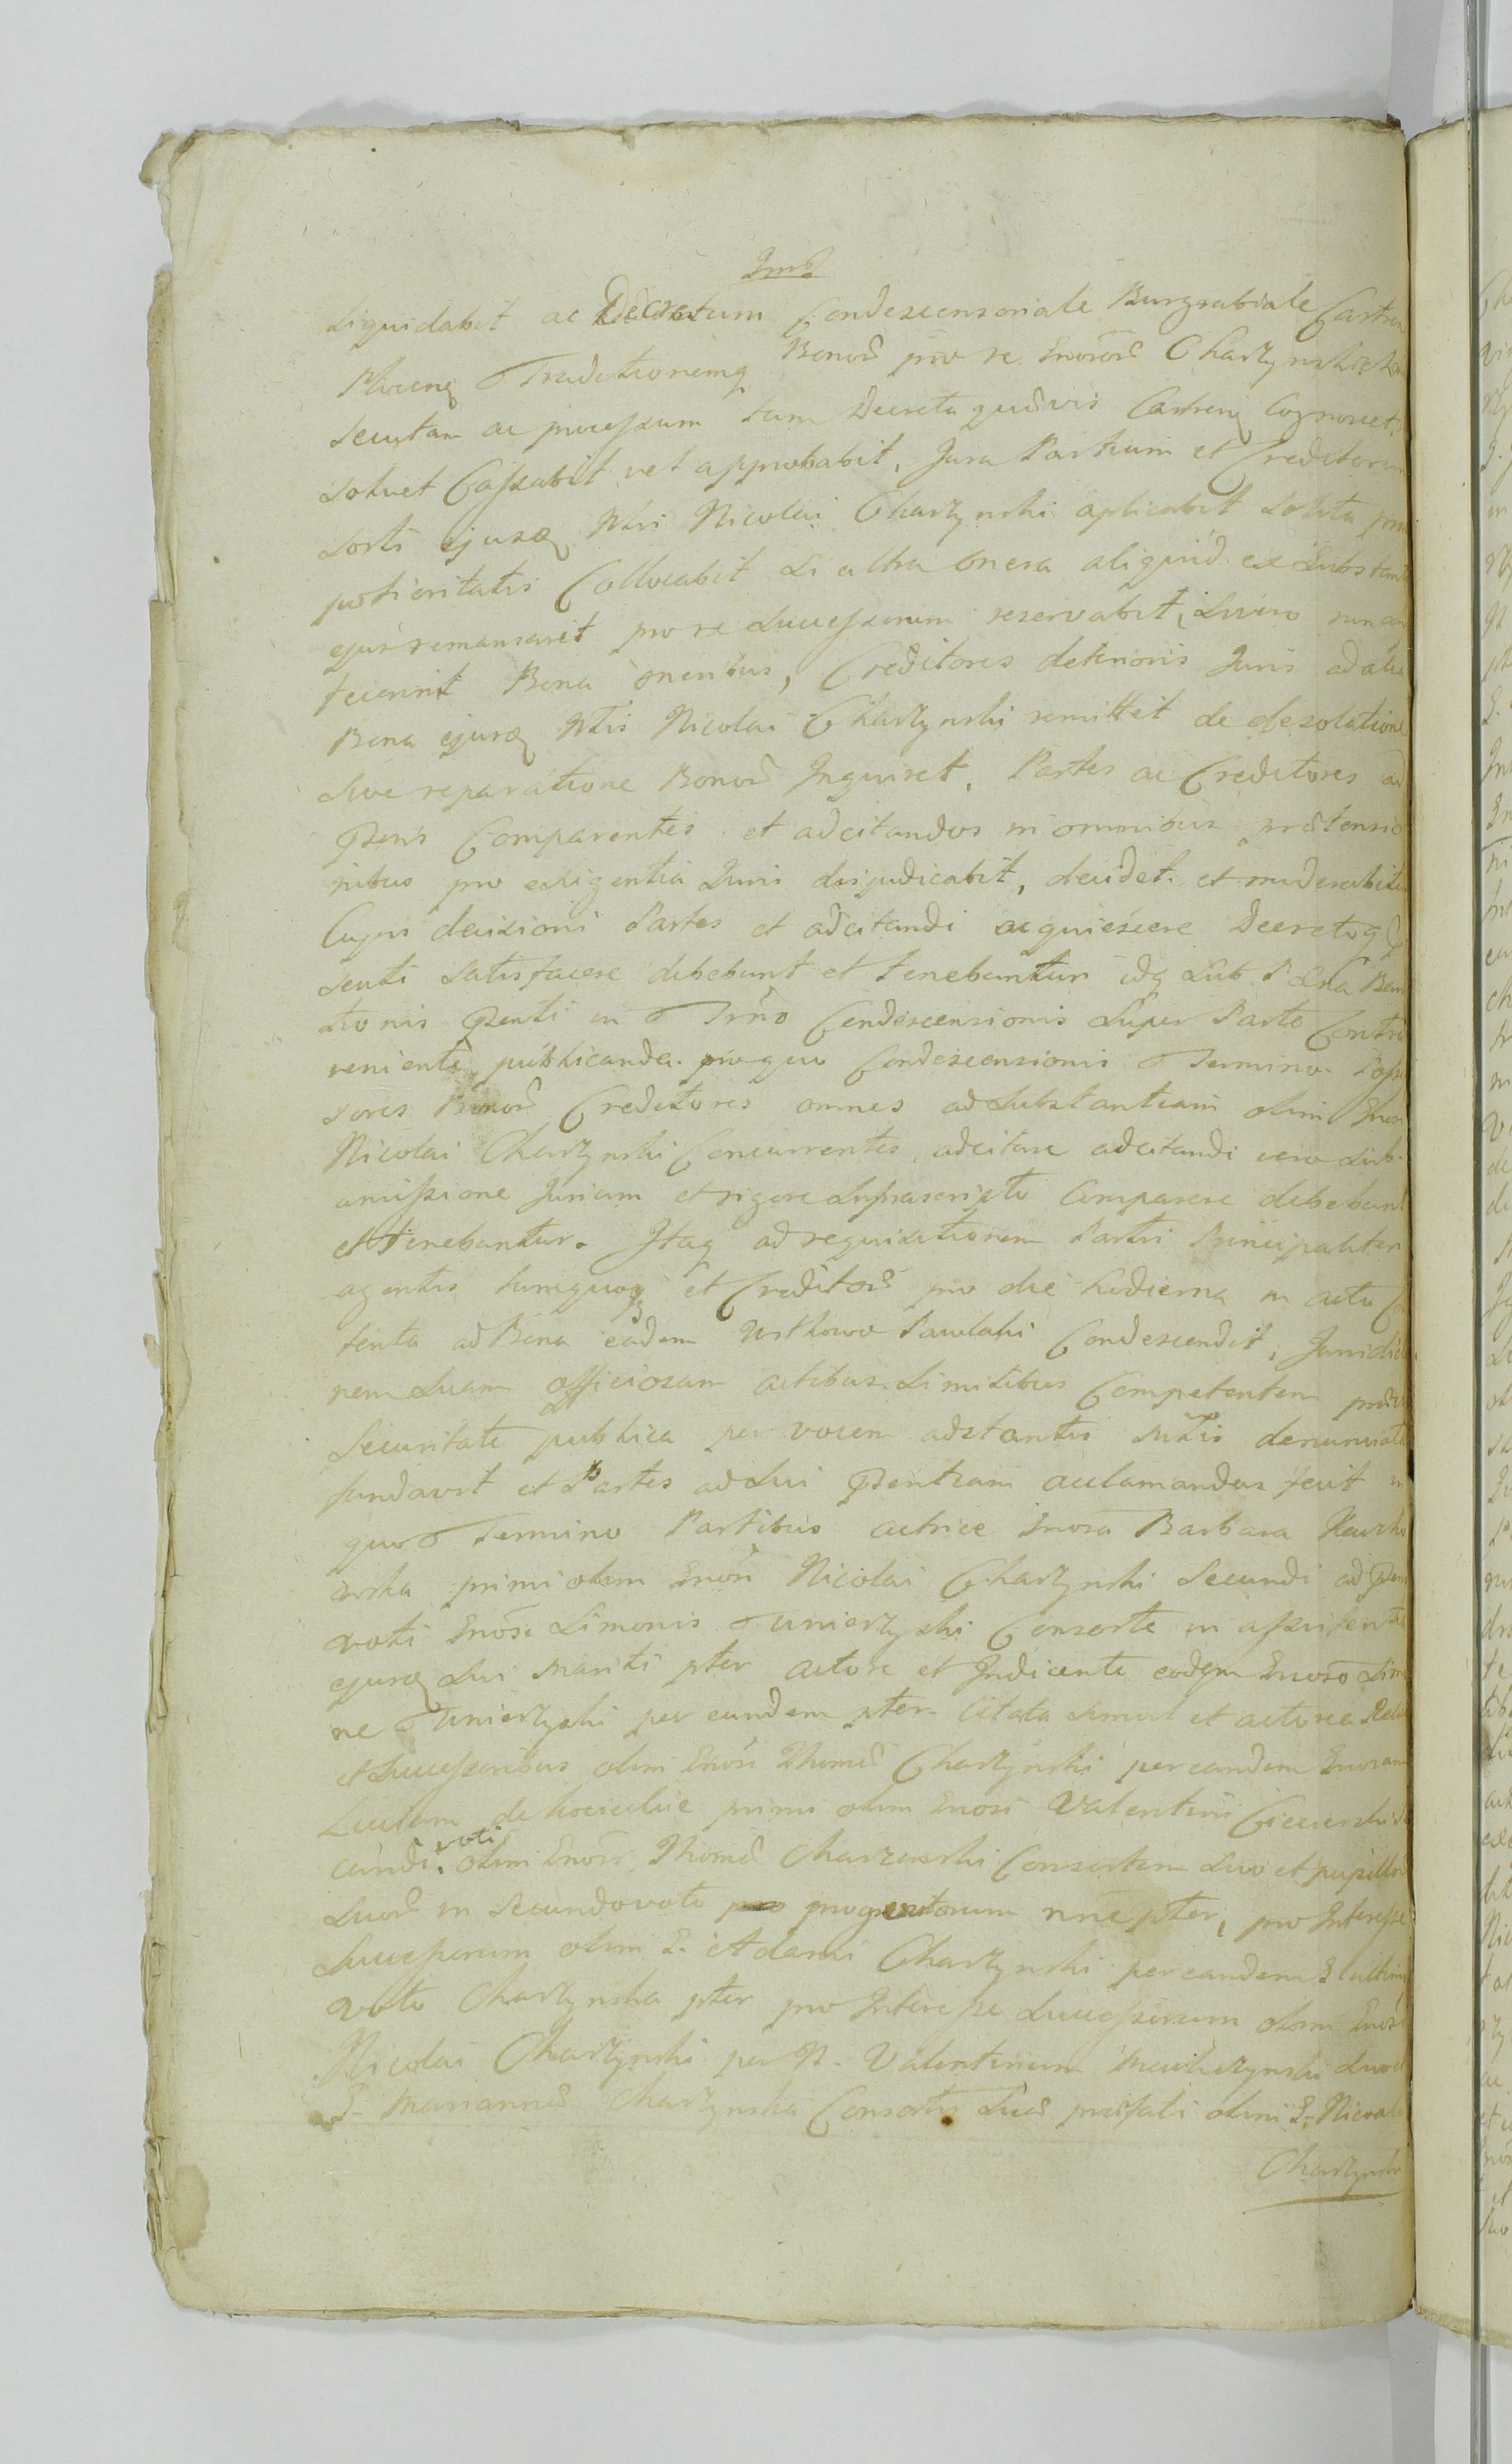 liquidabit ac Decretum Condescensoriale Burgrabiale Castren
Traditionemq Bonor pro re Enosor Charzynskich
secutam ac processum tum Decreta quævis Castren Cognoscet
solvet Cassabit vel approbabit, Jura Partium et Creditorum
sorti ejusq Nicolai Charzynski aplicabit
potioritatis Collocabit si ultra onera aliquid ex Substant
ejus remanserit pro re Successorum reservabit, Si vero non
fecerint Bona oneribus, Creditores deterioris Juris ad alia
Bona ejusq Nicolai Charzynski remittet de desolatione
sive reparatione Bonor Inquiret, Partes ac Creditores ad
Comparentes et adcitandos in omnibus prætensio
nibus pro exigentia Juris dijudicabit, decidet et moderabitur
Cujus decisioni Partes et adcitandi acquiescere Decretoq
senti satisfacere debebunt et tenebuntur idq sub Pæna Ban
tionis in Trno Condescensionis super Parte Contra
veniente publicanda. pro quo Condescensionis Termino Posse
sores Bonor Creditores omnes ad Substantiam olim Enosi
Nicolai Charzynski Concurrentes, adcitare adcitandi vero sub
amissione Jurium et rigore suprascripto Comparere debebunt
et tenebuntur. Itaq ad requisitionem Partis Principaliter
agentis tumquoq et Creditor pro die hodierna in actu Con
tenta ad Bona eadem Witkowo Pawlaki Condescendit, Jurisdictio
nem Suam officiosam actibus similibus Competentem
Securitate publica per vocem adstantis denunciata
fundavit et Partes ad sui acclamandas fecit in
quo Termino Partibus actrice Enosa Barbara
primi olim Enosi Nicolai Charzynski Secundi ad
voti Enosi Simonis Tunierzyski Consorte in assistentia
ejusq sui mariti pter actore et Indicente eodem Enoso Simo
ne Tunierzyski per eundem pter Citata simul et actorea
et Successoribus olim Enosi Thomæ Charzynski per eandem Enosam
primi olim Enosi Valentini
cundi voti olim Enosi Thomæ Charzewski Consortem suo et pupillor
suor in Secundo voto progenitorum nne pter, pro Interesse
Successorum olim G. Adami Charzynski per eandem G
voto Charzynska pter pro Interesse Successorum olim Enosi
Nicolai Charzynski per N. Valentinum suo et
G. Mariannæ Charzynska Consortis suæ præfati olim G. Nicolai
Charzynski